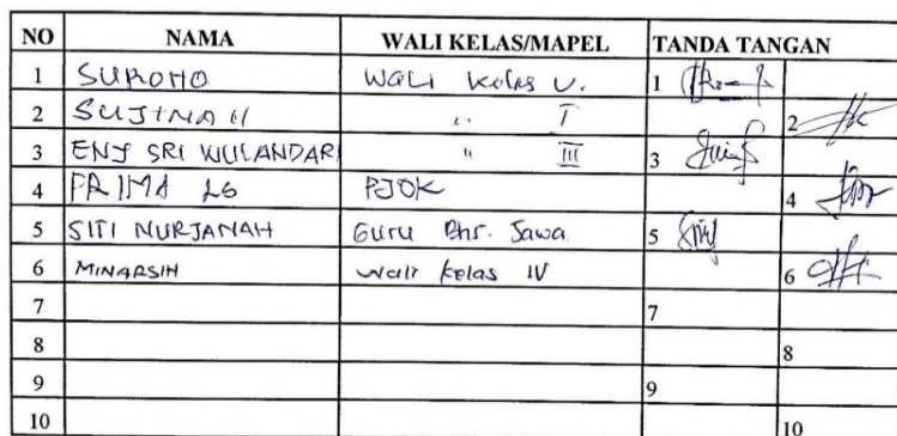 NO NAMA WALI KELAS/MAPEL TANDA TANGAN
1 SUROHO Wali Kelas V. 1
2 SUJINAH " I 2
3 ENY SRI WULANDARI " III 3
4 PRIMA LS PJOK 4
5 SITI NURJANAH Guru Bhs. Jawa 5
6 MINARSIH Wali Kelas IV 6
7 7
8 8
9 9
10 10